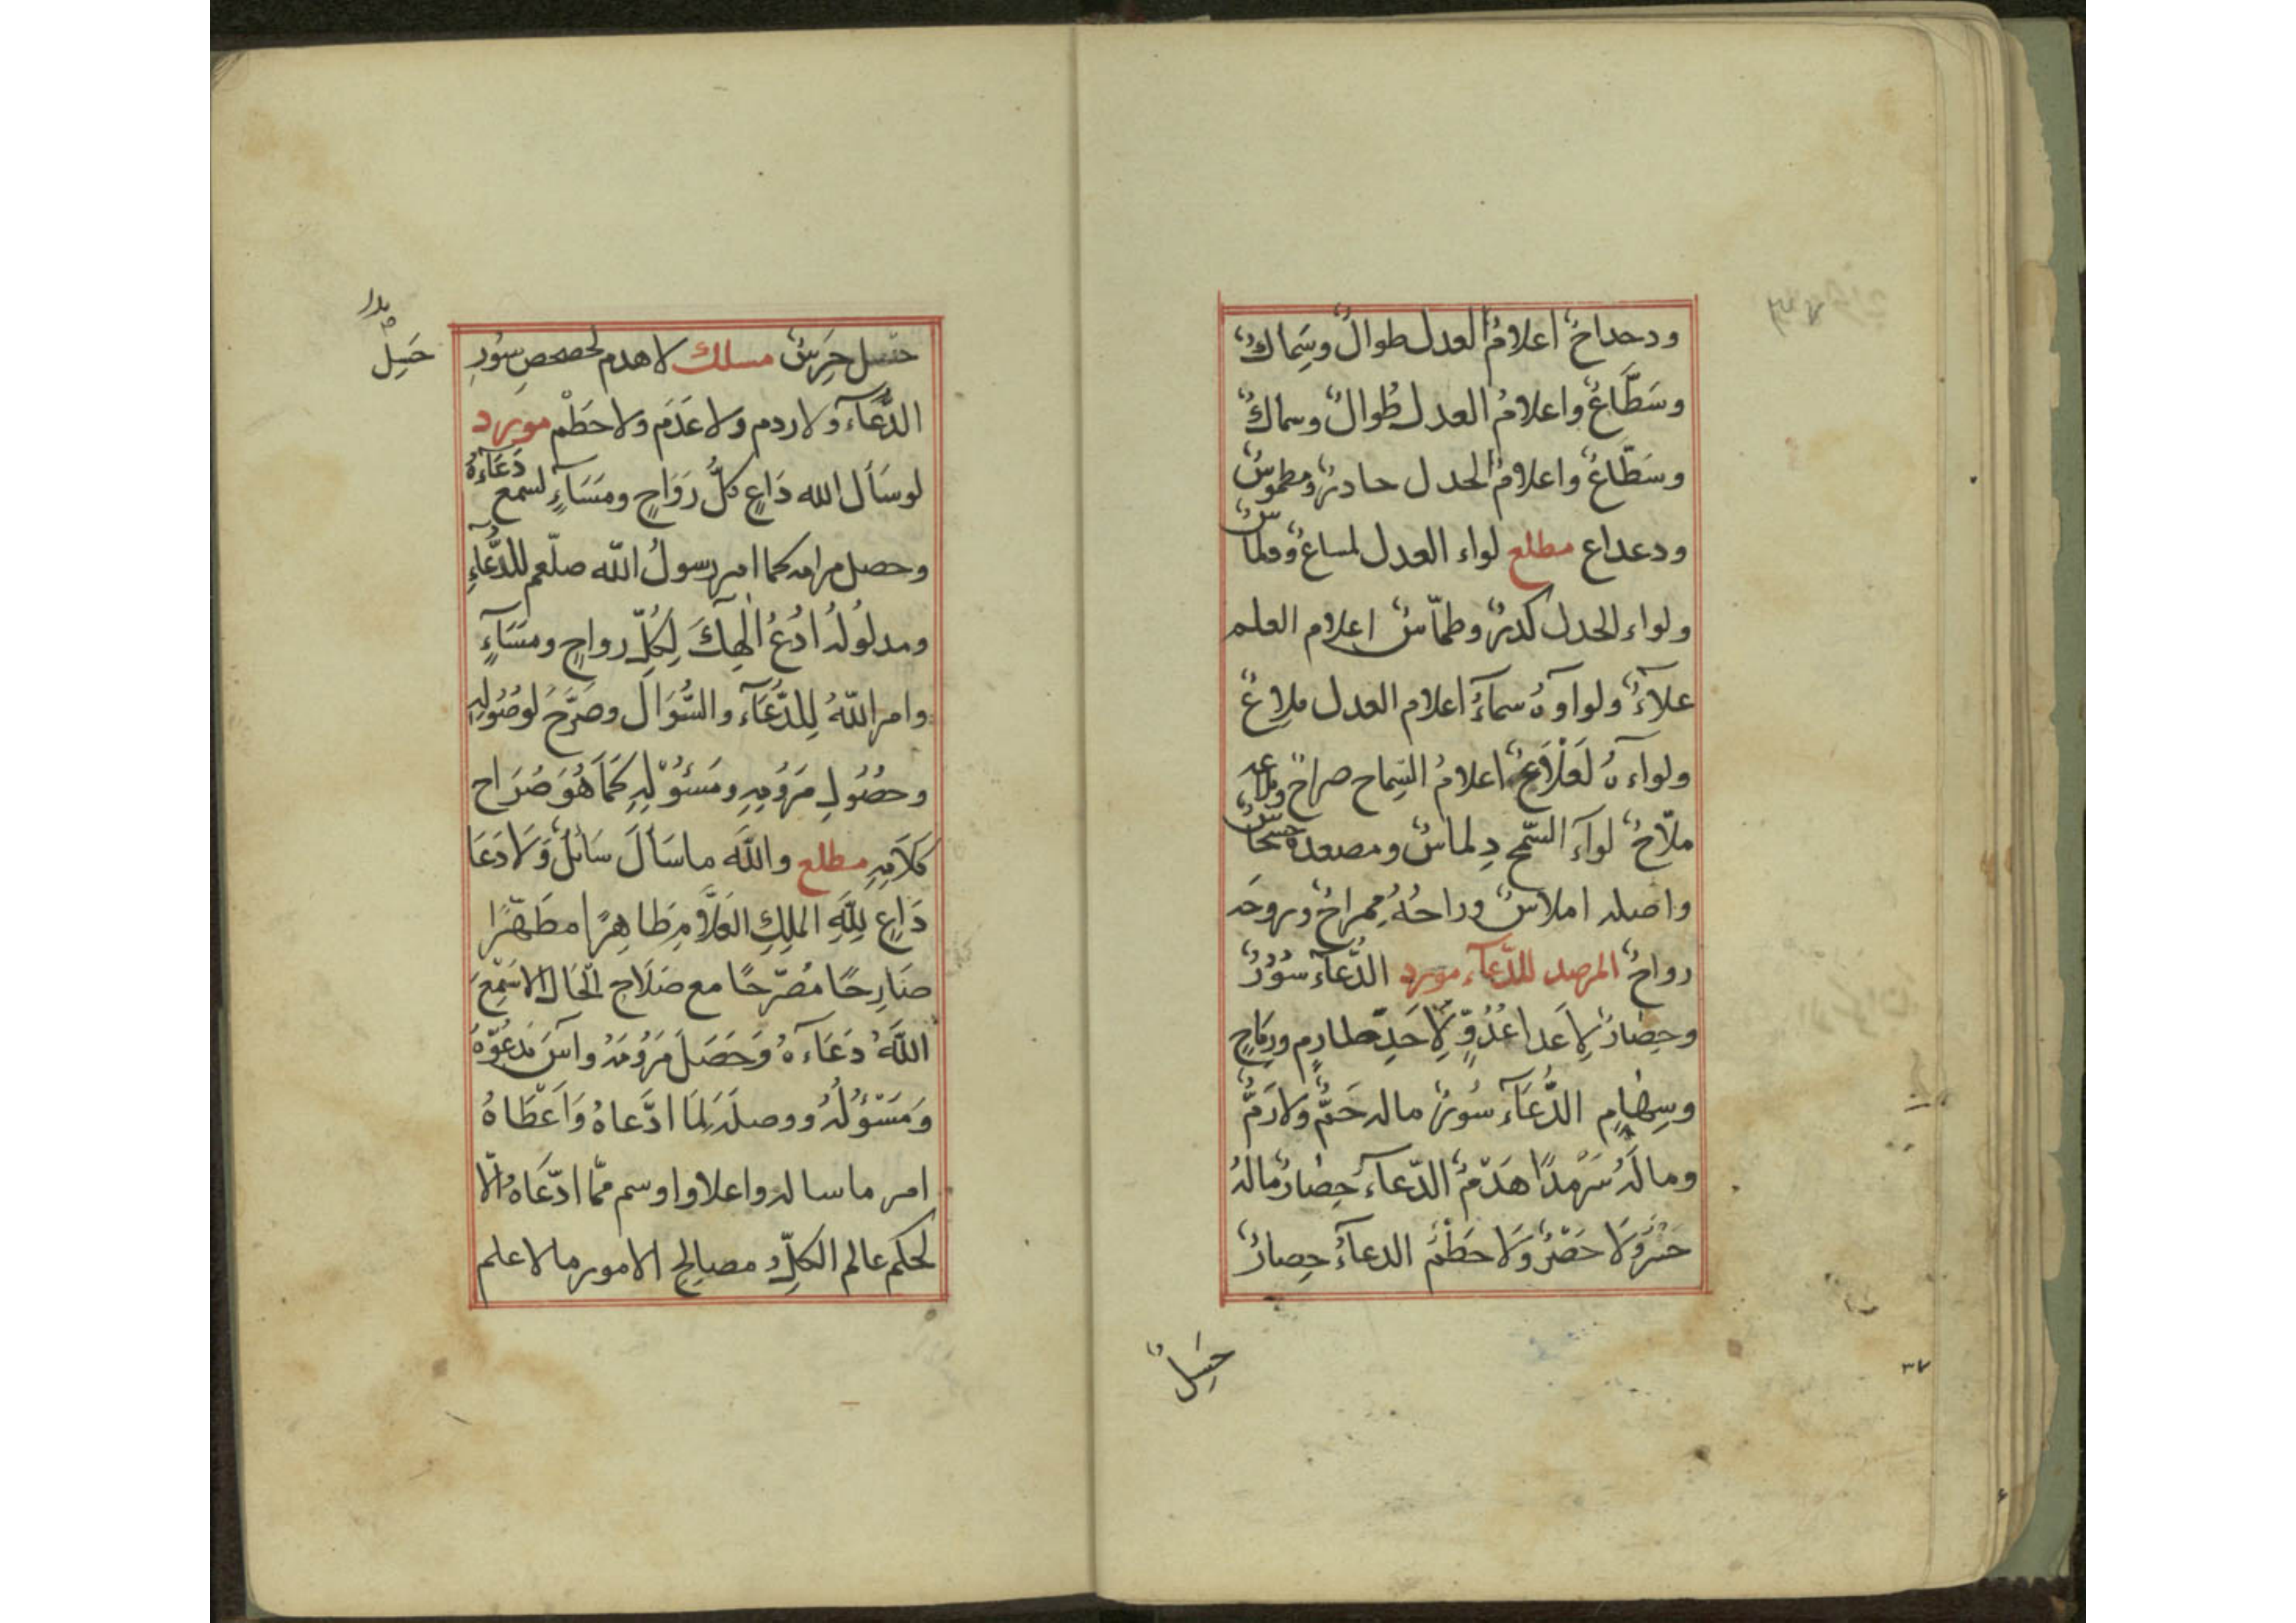 ودحداح اعلامُ العدل طوالٌ وسِماكٌ
وسَطَّاعٌ واعلامُ العدل طُوالٌ وسماكٌ
وسَطَّاعٌ واعلامُ الحدل حادرٌ ومطموسٌ
ودعداع مطلع لواء العدل لساعٌ ولماسٌ
ولواء الحدل كدرٌ وطمّاسٌ اعلام العلم
علاءٌ ولواوهُ سماءٌ اعلام العدل ملاعٌ
ولواءهُ لعلاعٌ اعلامُ السِّماح صراحٌ
ملّاحٌ لواءُ السَّمح دلماسٌ ومصعده
واصله املاسٌ وراحُهُ ممراحٌ وروحه
رواحٌ المرصد للدّعاء مورد الدُّعاء سُوْرٌ
وحِصارٌ لا عدا عُدُوٍّ لا حَدِّ صارمٍ ورِماحٍ
وسِهامٍ الدُّعَاء سُورٌ ماله حَمٌّ ولا رَمٌّ
وما لَهُ سَرْمدًا هَدْمٌ الدّعاءُ حِصارٌ مالهُ
حَسْرٌ ولَا حَصْرٌ ولَا حَطْمٌ الدعاءُ حِصارٌ
حِسْلٌ
حسل حَرَسٌ مسلك لا هدم لحصحصِ سُورِ
الدُّعَاءِ ولا ردم ولا عَدَم ولا حَطْم مورد
لو سَأل الله دَاعٍ كلَّ رَوَاحٍ ومَسَاءٍ لسمع دُعَاءَهُ
وحصل مرامه كما امر رسولُ الله صلعم للدُّعاءِ
ومدلُولُه ادْعُ الٰهِكَ لِكُلِّ رواحٍ ومَسَاءٍ
وامر اللهُ لِلدُّعَاء والسُّوَال وصَرَّحَ لوصُولِهِ
وحصُولِ مَرُومِهِ ومَسْئُوْلِهِ كَمَا هُوَ صُرَاح
كَلَامِهِ مطلع واللّه ما سَألَ سَائلٌ وَلا دَعَا
دَاعٍ لِلّهِ الملِكِ العَلَّامِ طَاهِرًا مطَهَّرًا
صَارِحًا مُصَرّحًا مع صَلَاحِ الحَال الا سَمِعَ
اللّهُ دُعَاءَهُ وَحَصَلَ مَرُومُهُ وآسَ مَدعُوّهُ
وَمَسْؤُلُهُ ووصلَهُ لِمَا ادَّعاهُ وَاَعْطَاهُ
امر ما ساله واعلا واوسم ممّا ادّعَاهُ والّا
لحكم عالم الكلِّ مصالح الامور ما لا علم
٣٧